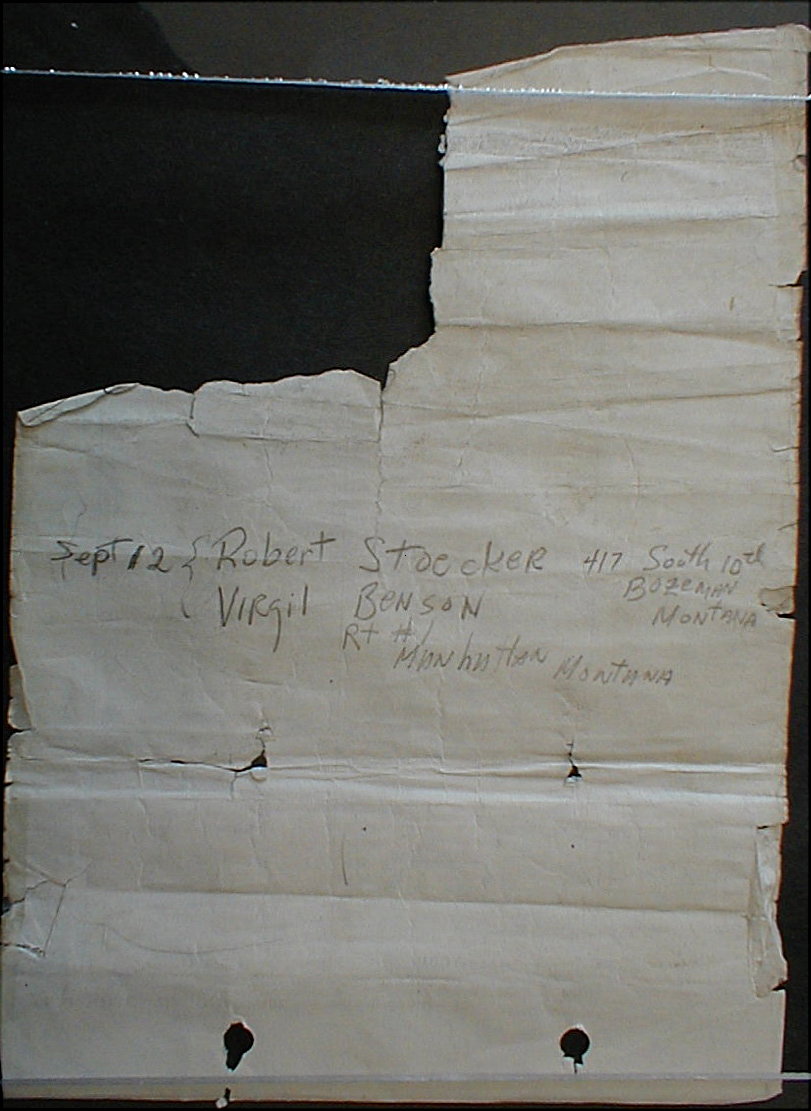 Sept 12 { Robert Stoecker 417 South 10th
Bozeman
Virgil Benson Montana
Rt #1
Manhattan Montana